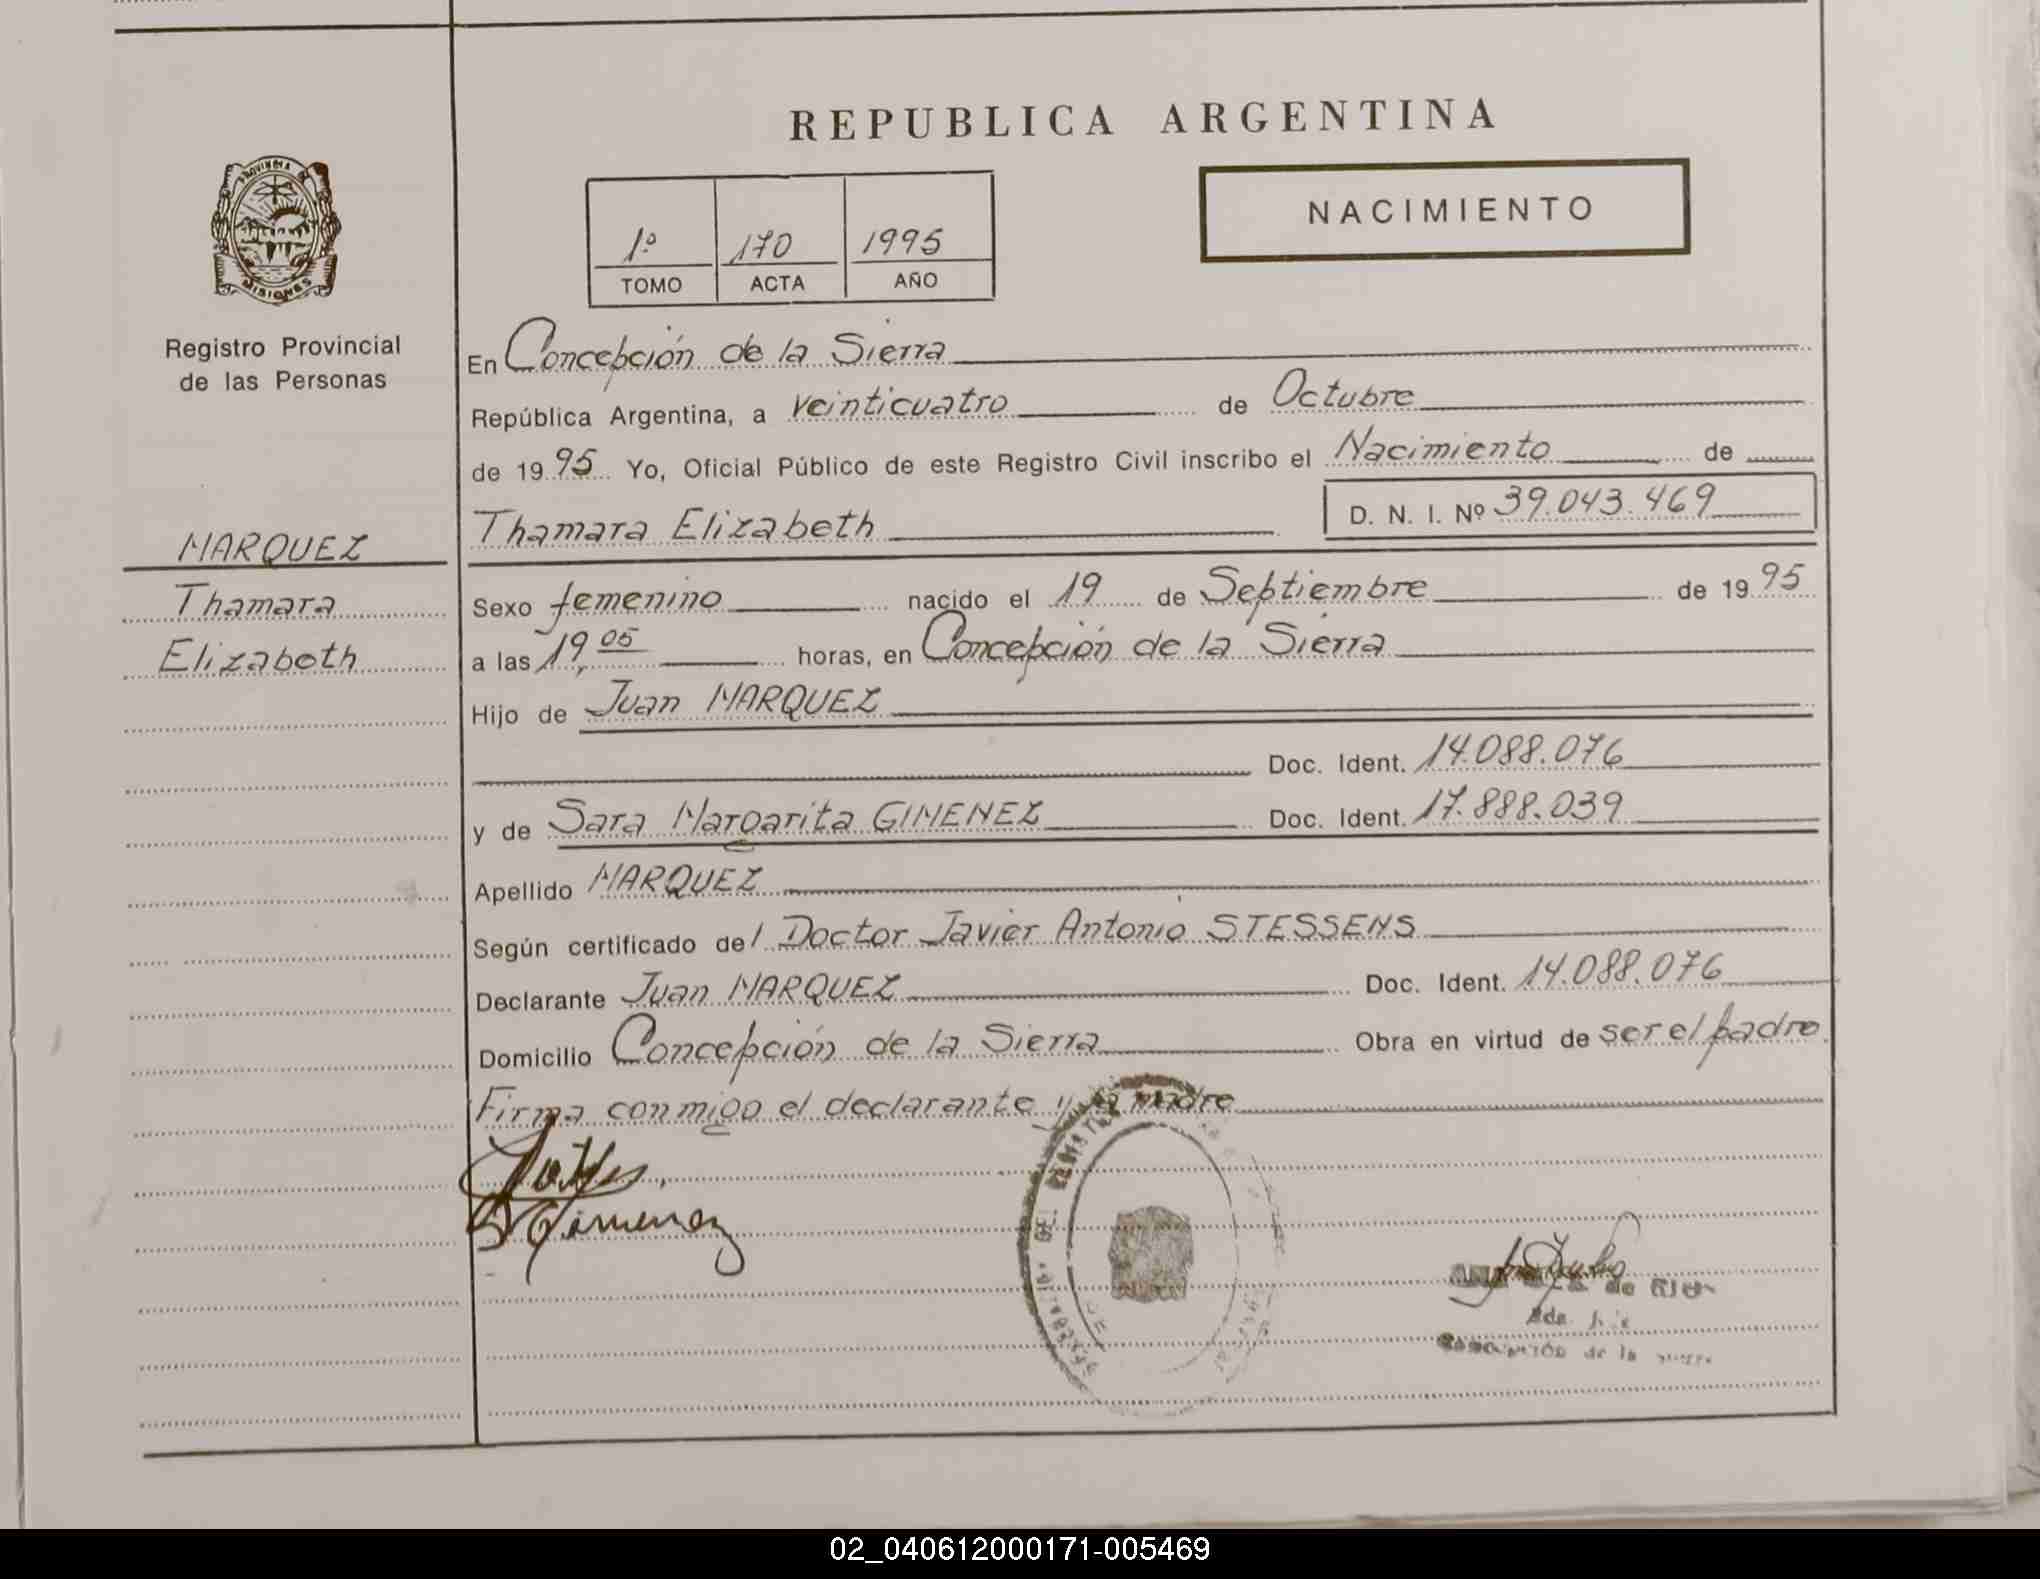 REPUBLICA ARGENTINA
PROVINCIA DE
MISIONES
Registro Provincial
de las Personas
1º 170 1995
TOMO ACTA AÑO
NACIMIENTO
En Concepción de la Sierra
República Argentina, a veinticuatro de Octubre
de 1995 Yo, Oficial Público de este Registro Civil inscribo el Nacimiento de
Thamara Elizabeth D. N. I. Nº 39.043.469
MARQUEZ
Thamara
Elizabeth
Sexo femenino nacido el 19 de Septiembre de 1995
a las 19,05 horas, en Concepción de la Sierra
Hijo de Juan MARQUEZ
Doc. Ident. 14.088.076
y de Sara Margarita GIMENEZ Doc. Ident. 17.888.039
Apellido MARQUEZ
Según certificado del Doctor Javier Antonio STESSENS
Declarante Juan MARQUEZ Doc. Ident. 14.088.076
Domicilio Concepción de la Sierra Obra en virtud de ser el padre
Firma conmigo el declarante y la madre
S Gimenez
de la
02_040612000171-005469